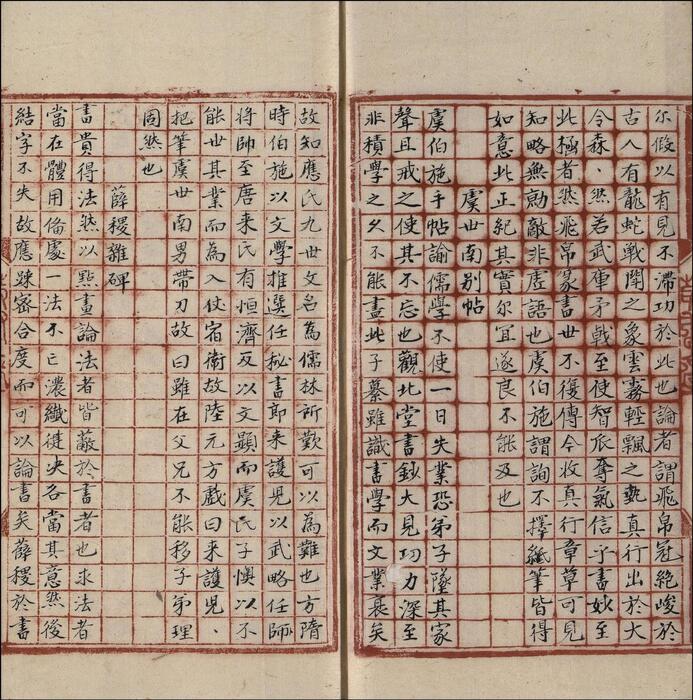 尓假以有見不滯功於此也論者謂飛帛冠絶峻於
古人有龍蛇戰鬪之象雲霧輕飄之埶真行出於大
令森、然若武庫矛戟至使智永奪氣信乎書妙至
此極者然飛帛篆書世不復傳今收真行章草可見
知略無勍敵非虛語也虞伯施謂詢不擇紙筆皆得
如意此正紀其實尔宜遂良不能及也
虞世南别帖
虞伯施手帖論儒學不使一日失業恐弟子墜其家
聲且戒之使其不忘也觀北堂書鈔大見功力深至
非積學之久不能盡此子纂雖識書學而文業衰矣
故知應氏九世文名為儒林所歎可以為難也方隋
時伯施以文學推選任祕書郎来護児以武略任師
將帥至唐来氏有恒濟反以文顯而虞氏子懊以不
能世其業而為入仗宿衛故陸元方戲曰来護児、
把筆虞世南男帶刀故曰雖在父兄不能移子弟理
固然也
薛稷雜碑
書貴得法然以㸃畫論法者皆蔽於書者也求法者
當在體用俻處一法不亡濃纖健决各當其意然後
結字不失故應踈密合度而可以論書矣薛稷於書